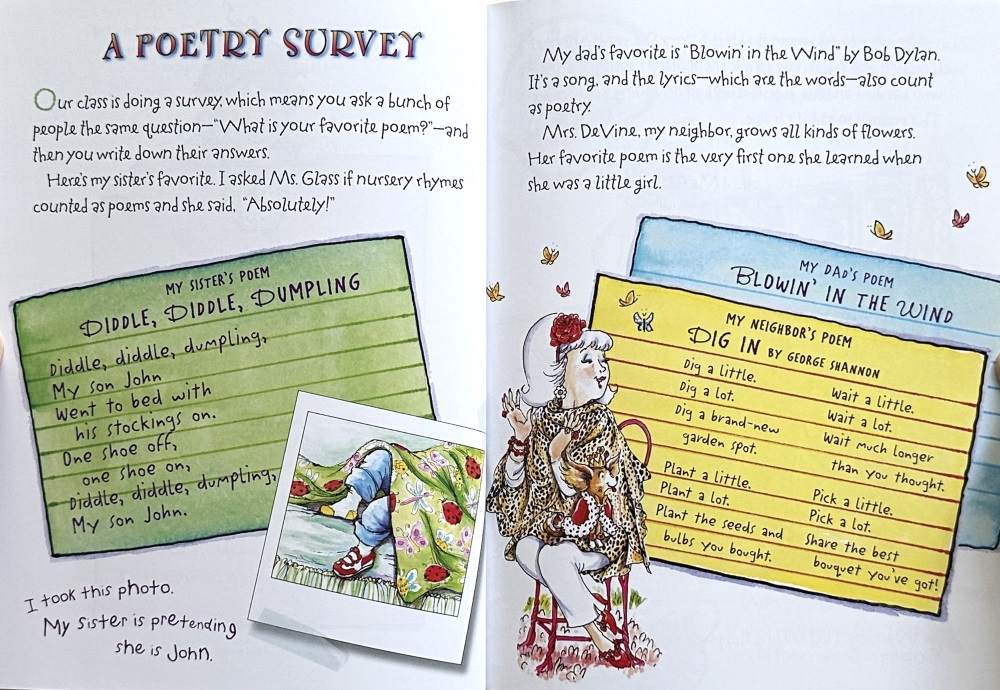 A POETRY SURVEY
Our class is doing a survey, which means you ask a bunch of
people the same question—"What is your favorite poem?"—and
then you write down their answers.
Here's my sister's favorite. I asked Ms. Glass if nursery rhymes
counted as poems and she said, "Absolutely!"
MY SISTER'S POEM
DIDDLE, DIDDLE, DUMPLING
Diddle, diddle, dumpling,
My son John
Went to bed with
his stockings on.
One shoe off,
one shoe on,
Diddle, diddle, dumpting,
My son John.
I took this photo.
My sister is pretending
she is John.
My dad's favorite is "Blowin' in the Wind" by Bob Dylan.
It's a song, and the lyrics—which are the words—also count
as poetry.
Mrs. DeVine, my neighbor, grows all kinds of flowers.
Her favorite poem is the very first one she learned when
she was a little girl.
MY DAD'S POEM
BLOWIN' IN THE WIND
MY NEIGHBOR'S POEM
DIG IN BY GEORGE SHANNON
Dig a little.
Dig a lot.
Dig a brand-new
garden spot.
Plant a little.
Plant a lot.
Plant the seeds and
bulbs you bought.
Wait a little.
Wait a lot.
Wait much longer
than you thought.
Pick a little.
Pick a lot.
Share the best
bouquet you've got!